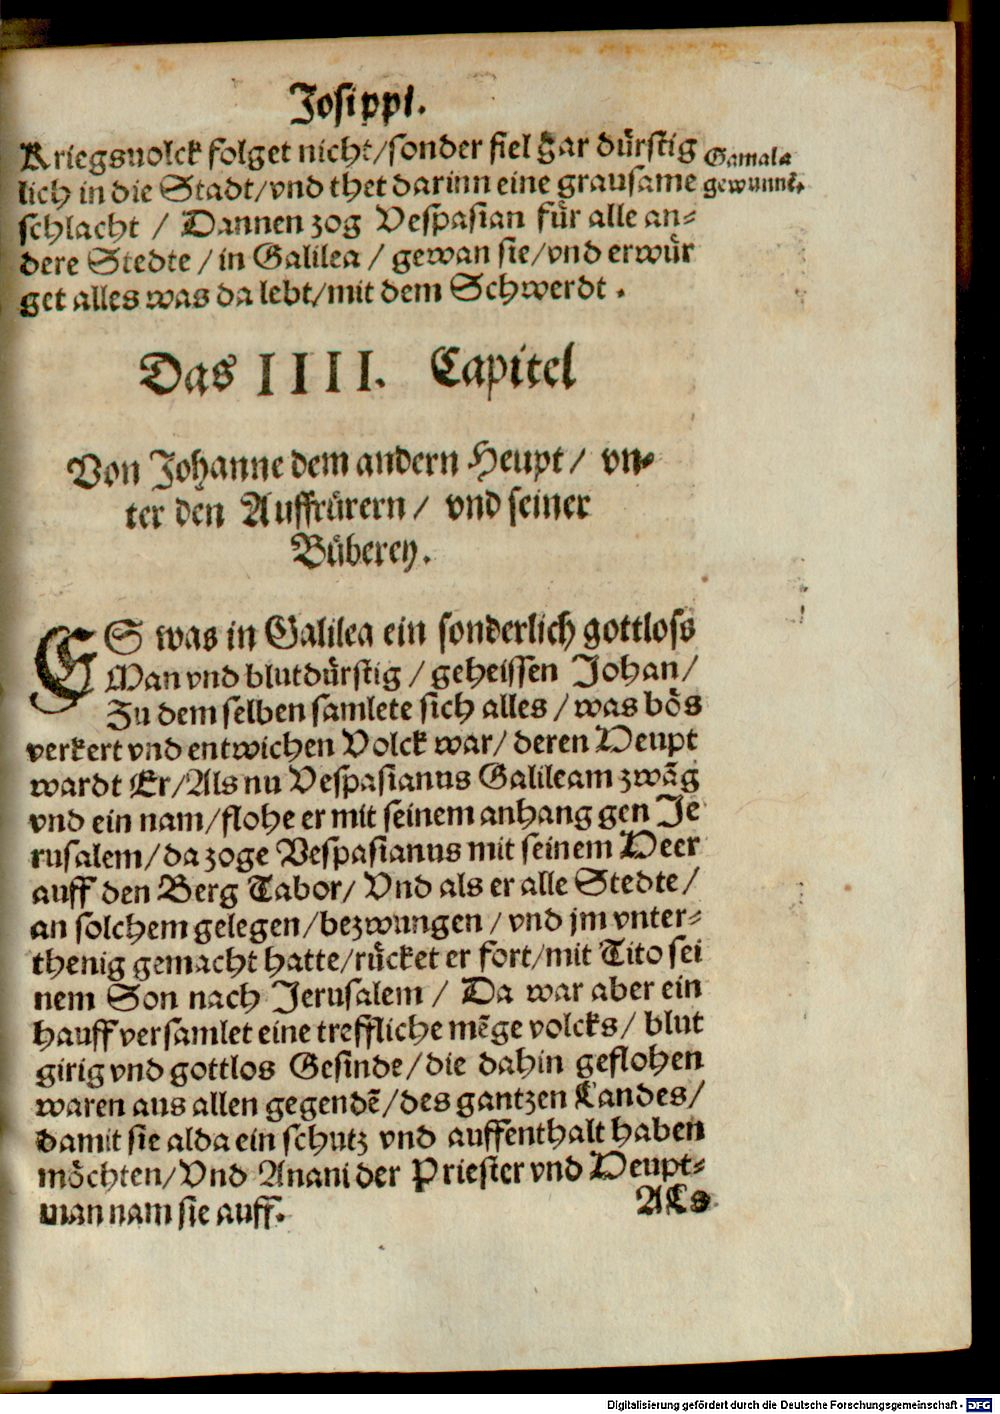 Josippi.
Kriegsuolck folget nicht/sonder fiel gar dürstig
lich in die Stadt/vnd thet darinn eine grausame
schlacht / Dannen zog Vespasian für alle an⸗
dere Stedte / in Galilea / gewan sie/vnd erwür
get alles was da lebt/mit dem Schwerdt.
Gamala
gewunnē.
Das IIII. Capitel
Von Johanne dem andern Heupt/ vn⸗
ter den Auffrürern/ vnd seiner
Büberey.
ES was in Galilea ein sonderlich gottloss
Man vnd blutdürstig / geheissen Johan/
Zu dem selben samlete sich alles / was bös
verkert vnd entwichen Volck war/ deren Heupt
wardt Er/Als nu Vespasianus Galileam zwāg
vnd ein nam/flohe er mit seinem anhang gen Je
rusalem/da zoge Vespasianus mit seinem Heer
auff den Berg Tabor/ Vnd als er alle Stedte/
an solchem gelegen/bezwungen / vnd jm vnter⸗
thenig gemacht hatte/rücket er fort/mit Tito sei
nem Son nach Jerusalem / Da war aber ein
hauff versamlet eine treffliche mēge volcks/ blut
girig vnd gottlos Gesinde/die dahin geflohen
waren aus allen gegendē/des gantzen Landes/
damit sie alda ein schutz vnd auffenthalt haben
möchten/Vnd Anani der Priester vnd Heupt⸗
man nam sie auff.
Als
Digitalisierung gefördert durch die Deutsche Forschungsgemeinschaft - DFG